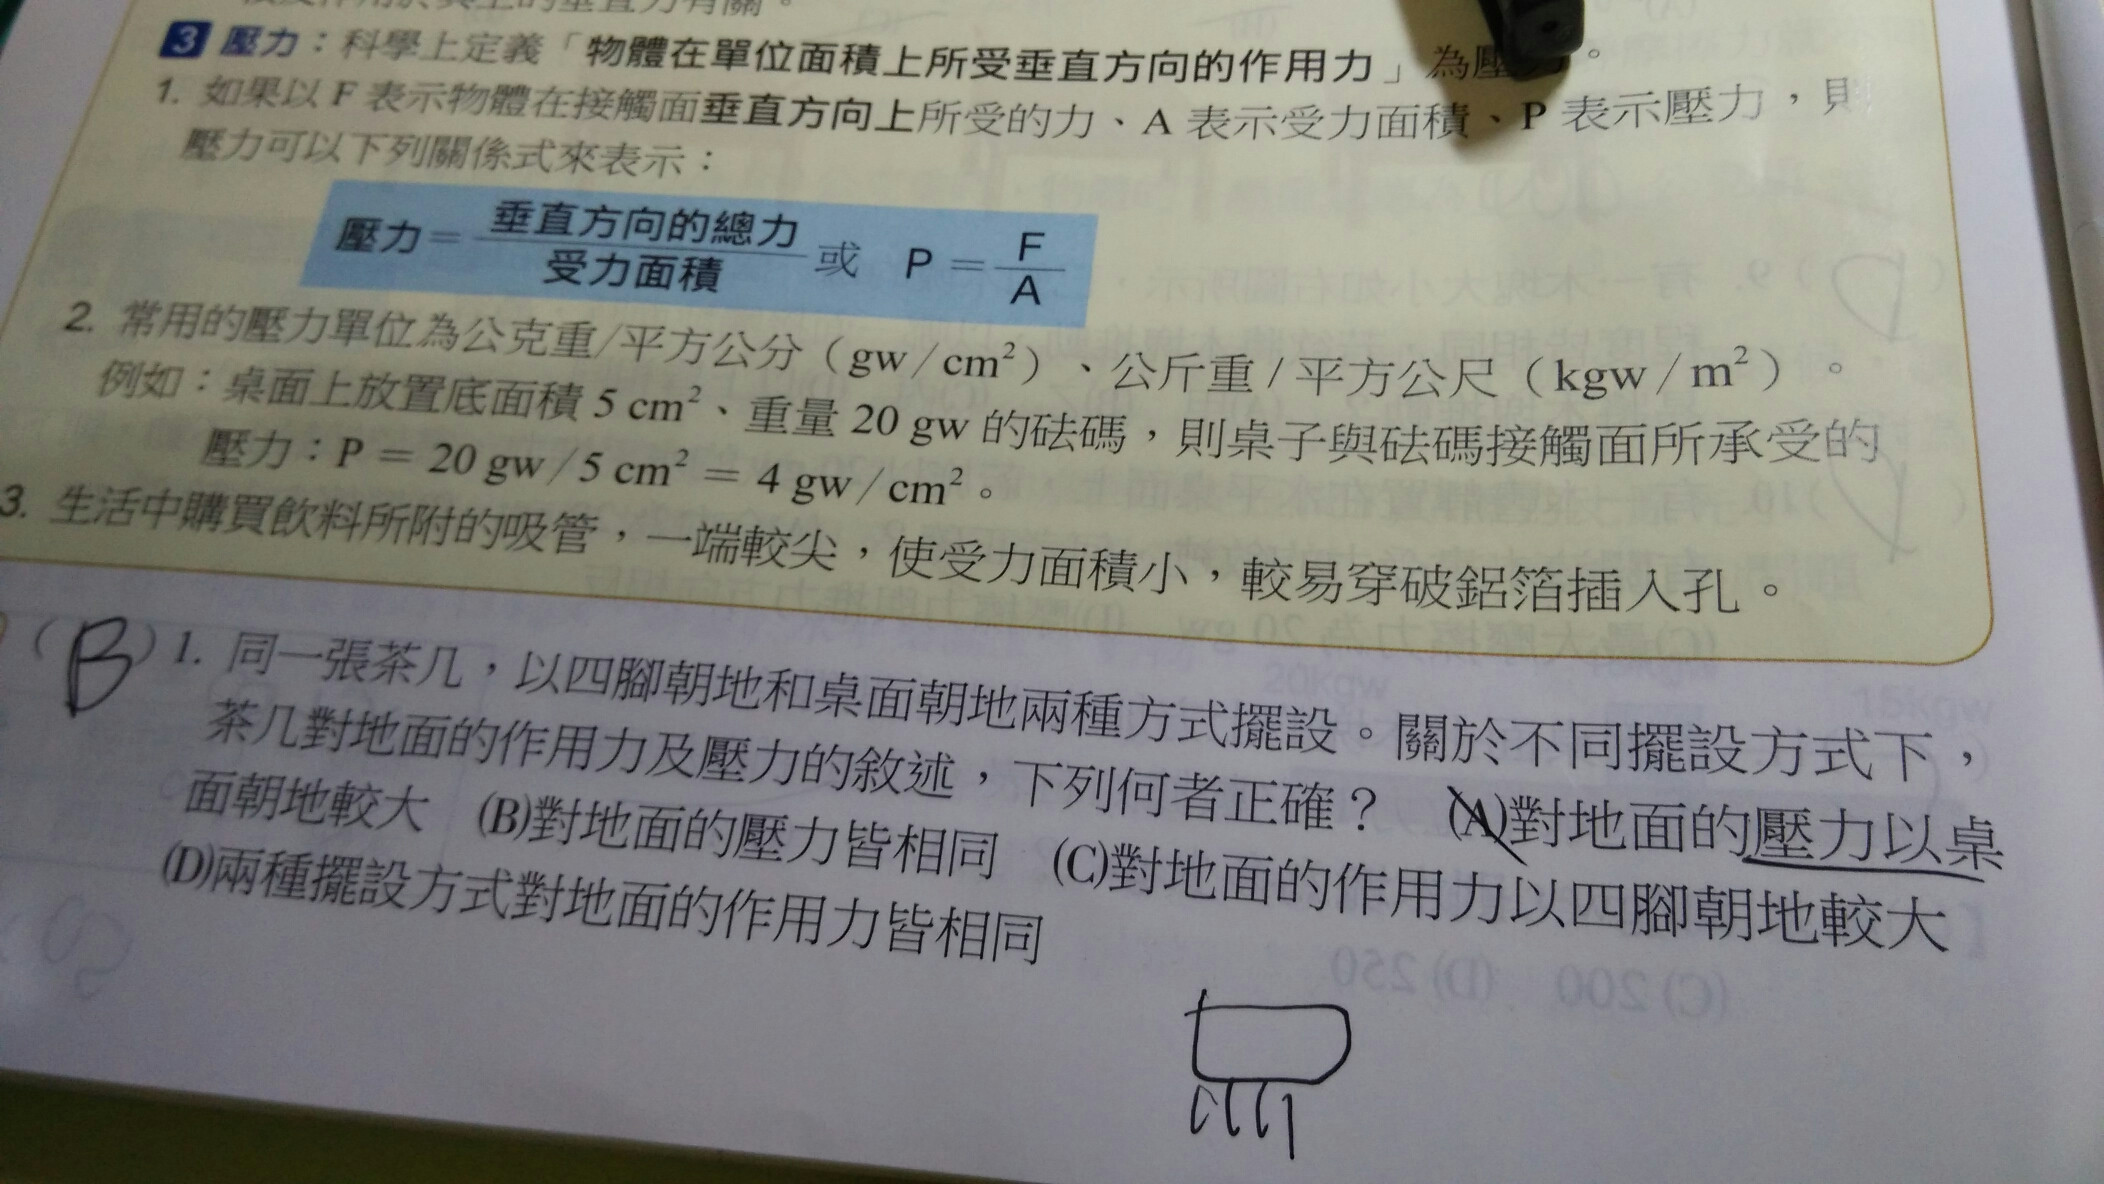 3 壓力：科學上定義「物體在單位面積上所受垂直方向的作用力」為壓力。
1. 如果以 F 表示物體在接觸面垂直方向上所受的力、A 表示受力面積、P 表示壓力，則
壓力可以下列關係式來表示：
壓力＝垂直方向的總力/受力面積 或 P＝F/A
2. 常用的壓力單位為公克重/平方公分（gw/cm²）、公斤重/平方公尺（kgw/m²）。
例如：桌面上放置底面積 5 cm²、重量 20 gw 的砝碼，則桌子與砝碼接觸面所承受的
壓力：P = 20 gw/5 cm² = 4 gw/cm²。
3. 生活中購買飲料所附的吸管，一端較尖，使受力面積小，較易穿破鋁箔插入孔。
（B）1. 同一張茶几，以四腳朝地和桌面朝地兩種方式擺設。關於不同擺設方式下，
茶几對地面的作用力及壓力的敘述，下列何者正確？ (A)對地面的壓力以桌
面朝地較大 (B)對地面的壓力皆相同 (C)對地面的作用力以四腳朝地較大
(D)兩種擺設方式對地面的作用力皆相同